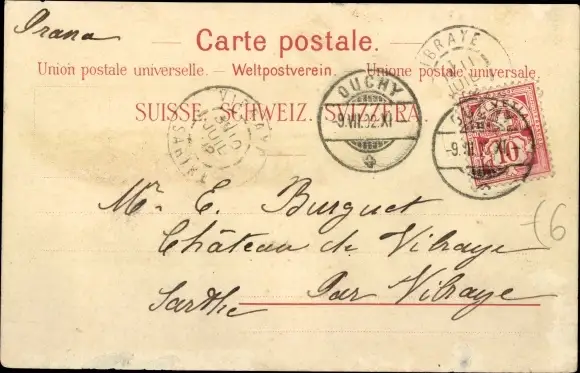 Prana
Carte postale.
Union postale universelle. — Weltpostverein. — Unione postale universale.
SUISSE. SCHWEIZ. SVIZZERA.
OUCHY
-9.VII.92.XI
-9.VII. XI
10
BRAYE
Mr. E. Burguet
Château de Vibraye
Sarthe Par Vibraye
6